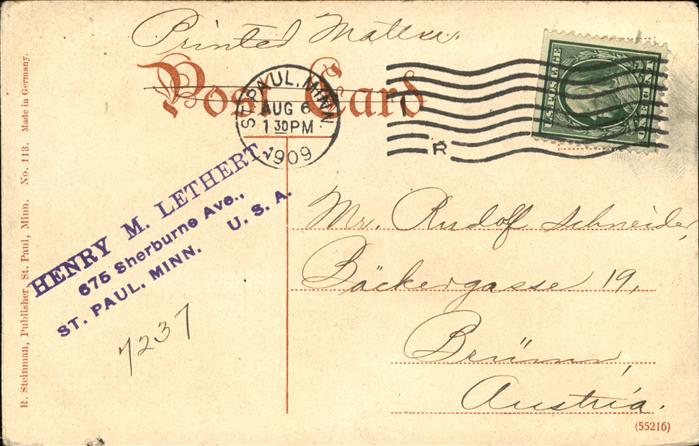 Printed Matter.
Post Card
ST. PAUL, MINN.
AUG 6
1 30 PM
1909
R
U.S. POSTAGE
HENRY M. LETHERT,
675 Sherburne Ave.,
ST. PAUL, MINN. U. S. A.
7237
Mr. Rudolf Schneider,
Bäckergasse 19,
Brünn,
Austria.
R. Steinman, Publisher, St. Paul, Minn. No. 113. Made in Germany.
(55216)